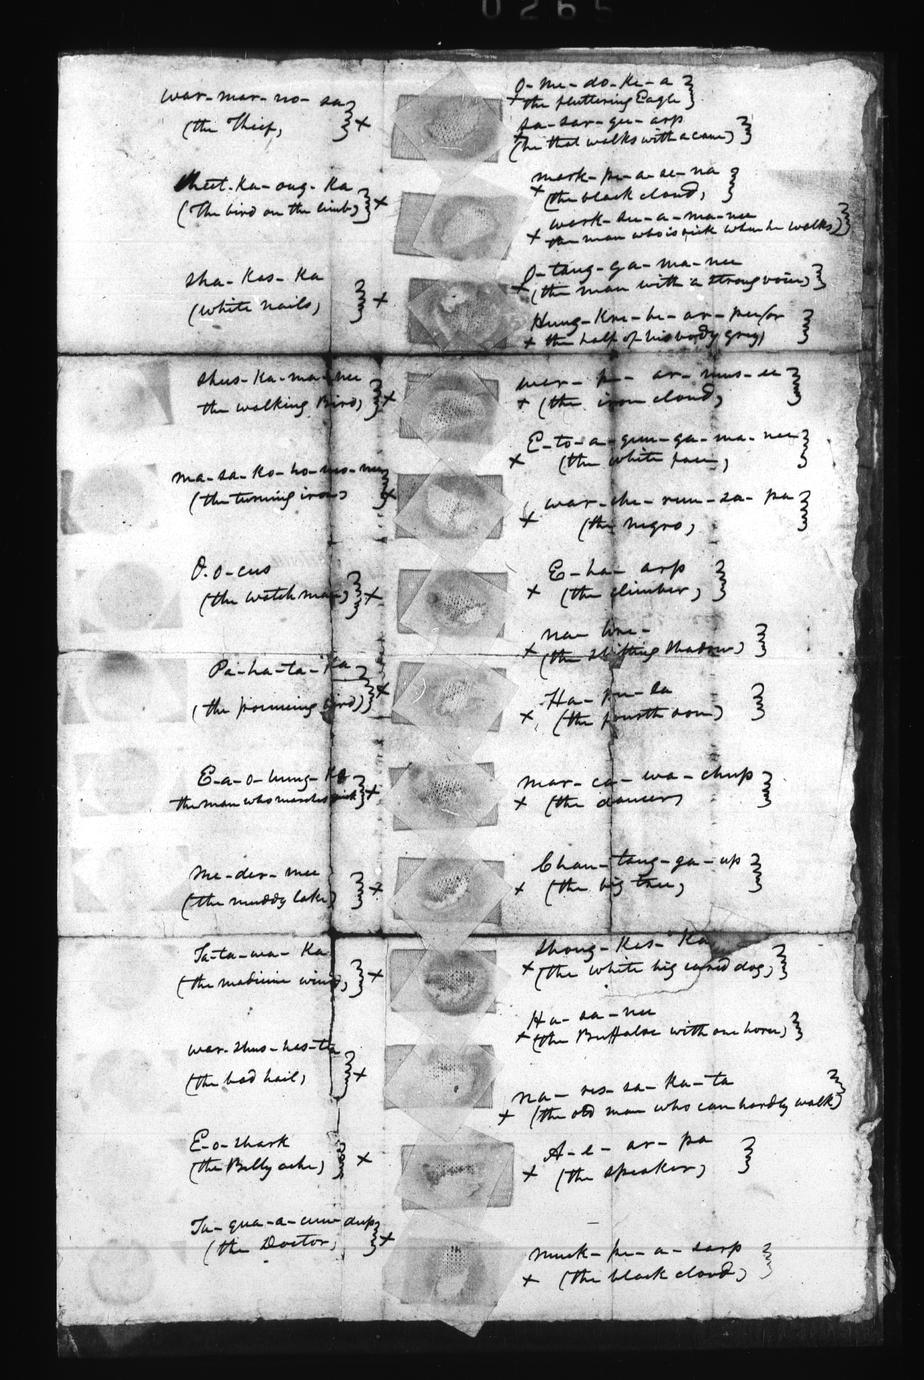 0265
War-mar-no-sa
(the Thief,) x
(The bird on the limb,) x
Sha-kas-ka
(White nails,) x
Shus-ka-ma-nee
the walking Bird,) x
Ma-sa-ko-ho-mo-nee
(the turning iron) x
O-o-cus
(the watch man,) x
Pa-ha-ta-ka
(the bird) x
E-a-o-hung-ka
the man who marches quick x
Me-der-mee
(the muddy lake) x
Ta-ta-wa-ka
(the medicine wind,) x
War-shus-has-ta
(the bad hail,) x
E-o-shark
(the Belly ache,) x
(the Doctor,) x
O-me-do-ke-a
x the fluttering Eagle
Sa-sar-que-arp
x (he that walks with a cane)
Mark-pe-a-se-na
x (the black cloud,)
Wark-su-a-ma-nee
x the man who is sick when he walks)
O-tang-ga-ma-nee
x (the man with a strong voice,)
Hung-kre-he-ar-pee
x the half of his body gray)
War-pe-ar-mus-ee
x (the iron cloud,)
E-to-a-gun-ga-ma-nee
x (the white face,)
War-she-run-sa-pa
x (the negro,)
E-ha-arp
x (the climber,)
x (the shifting shadow)
Ha-pu-la
x (the fourth son)
Mar-ca-wa-chup
x (the dancer,)
Chan-tang-ga-up
x (the big tree,)
Shong-kas-ka
x (the white big eared dog,)
Ha-sa-nee
x (the Buffaloe with one horn,)
Na-res-sa-ka-ta
x (the old man who can hardly walk)
A-e-ar-pa
x (the speaker,)
Muck-pe-a-sarp
x (the black cloud,)